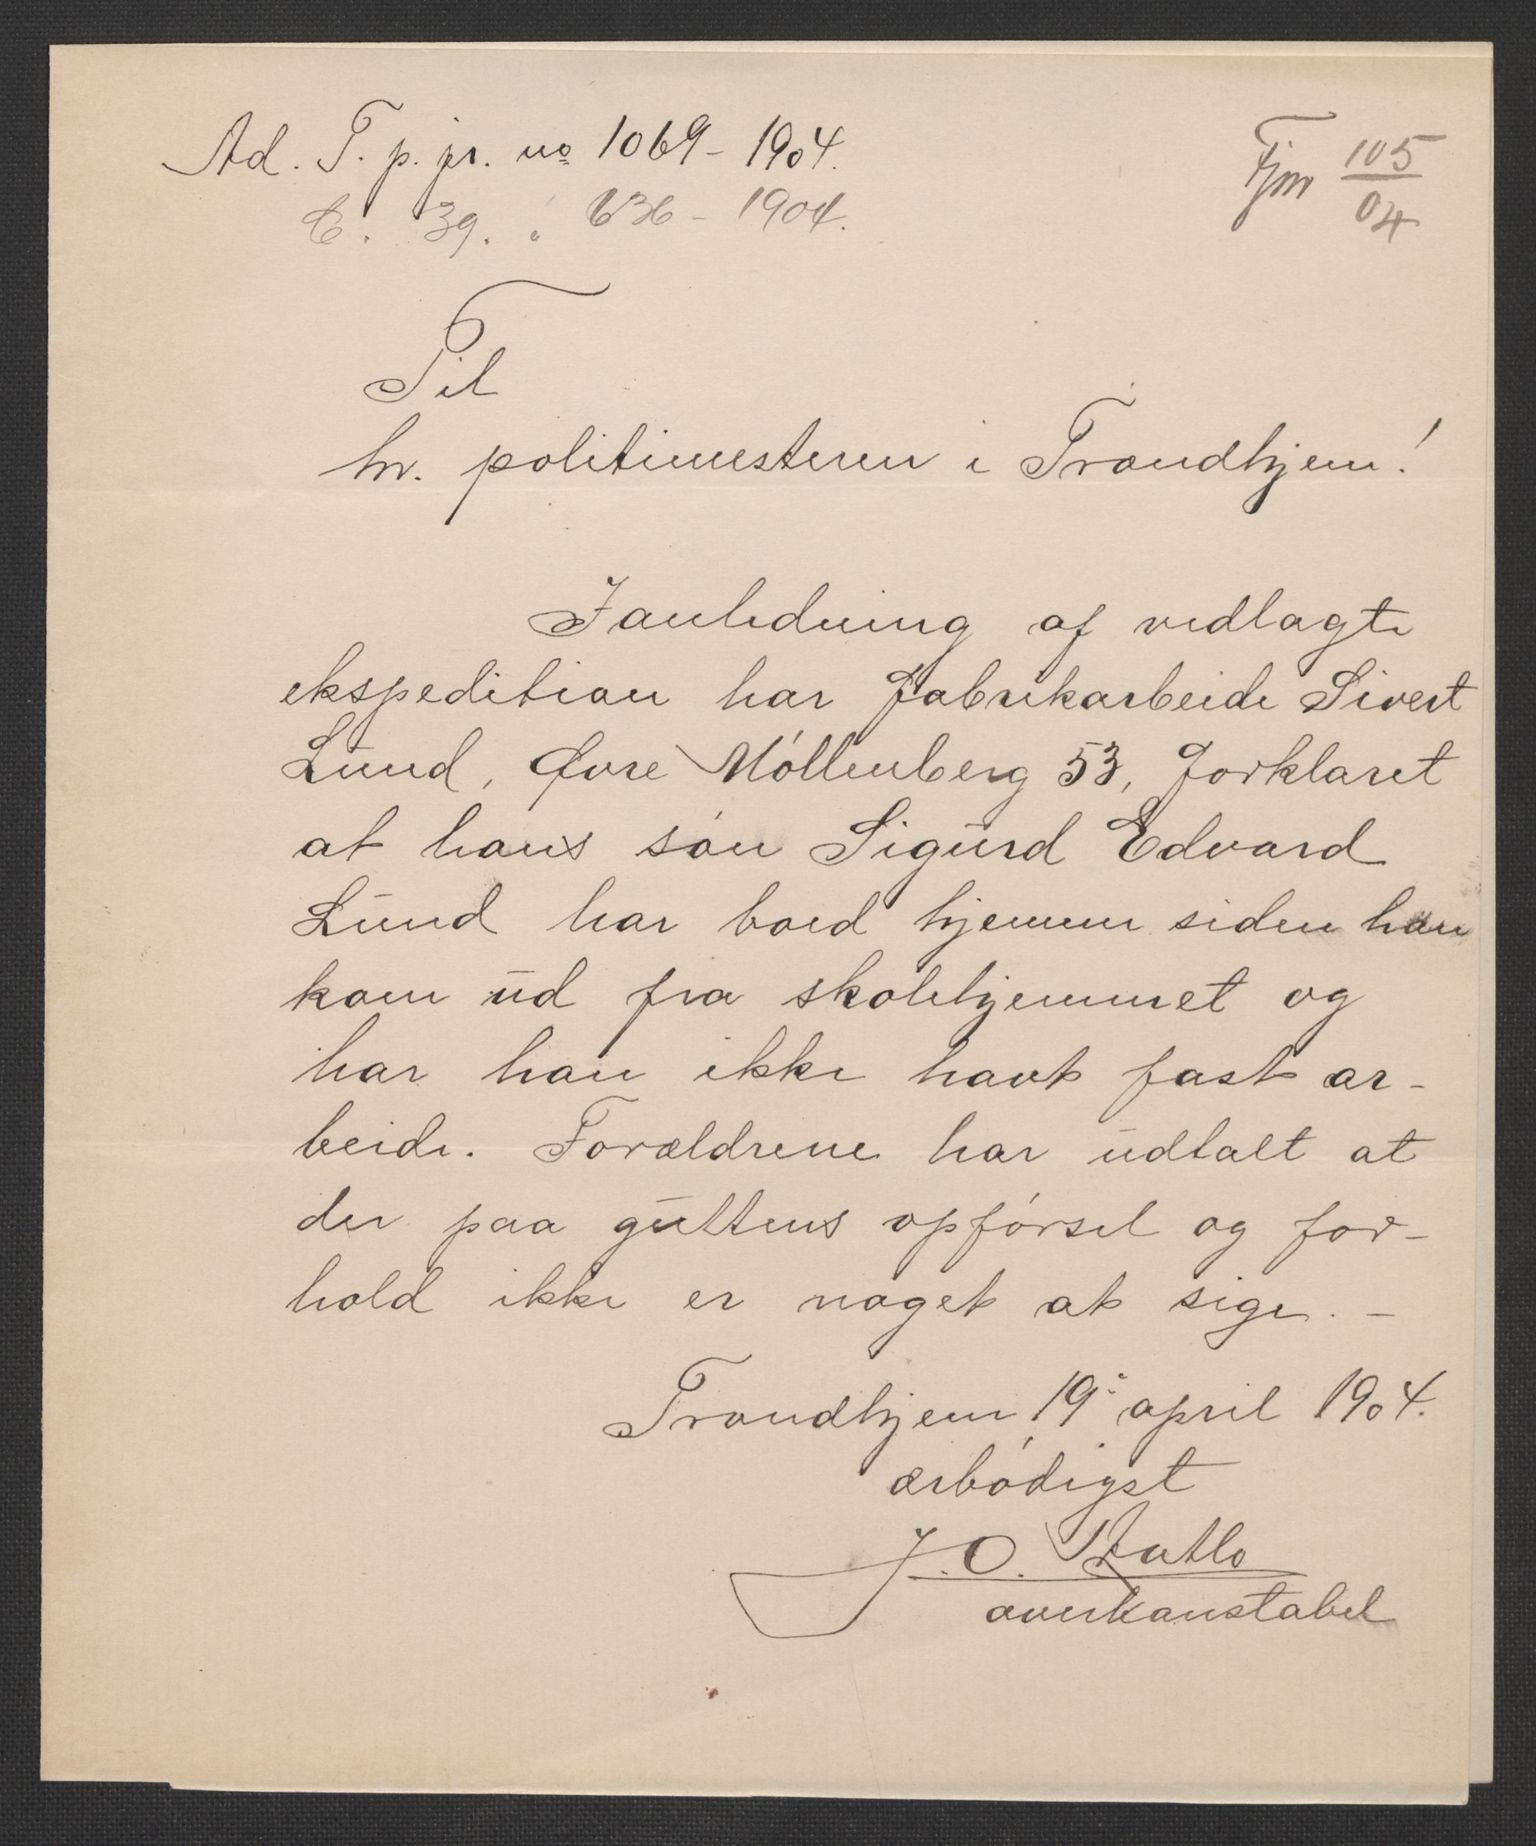 Ad. T. p. jr. no 1069 - 1904.
C. 39. " 636 - 1904.
Fjm 105/04
Til
hr. politimesteren i Trondhjem!
I anledning af vedlagte
ekspedition har fabrikarbeide Sivert
Lund, Øvre Möllenberg 53, forklaret
at hans sön Sigurd Edvard
Lund har boed hjemme siden han
kom ud fra skolehjemmet og
har han ikke havt fast ar-
beide. Forældrene har udtalt at
der paa guttens opförsel og for-
hold ikke er noget at sige. -
Trondhjem 19 april 1904.
ærbödigst
J. O.
overkonstabel